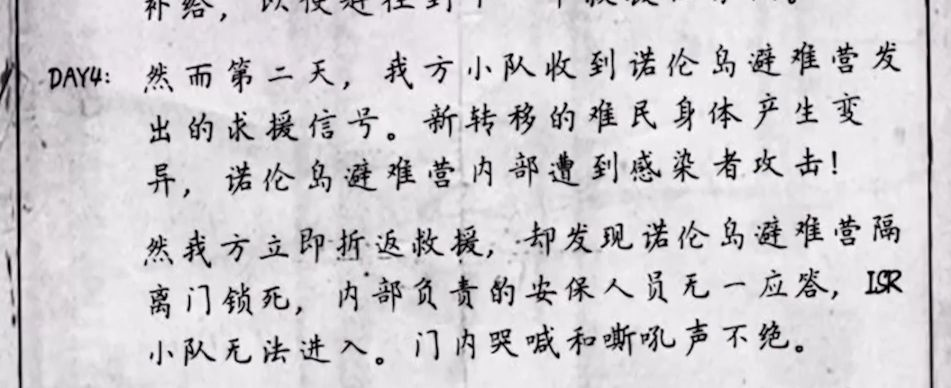 补给,
DAY4: 然而第二天，我方小队收到诺伦岛避难营发
出的求援信号。新转移的难民身体产生变
异，诺伦岛避难营内部遭到感染者攻击！
然我方立即折返救援，却发现诺伦岛避难营隔
离门锁死，内部负责的安保人员无一应答，ISR
小队无法进入。门内哭喊和嘶吼声不绝。